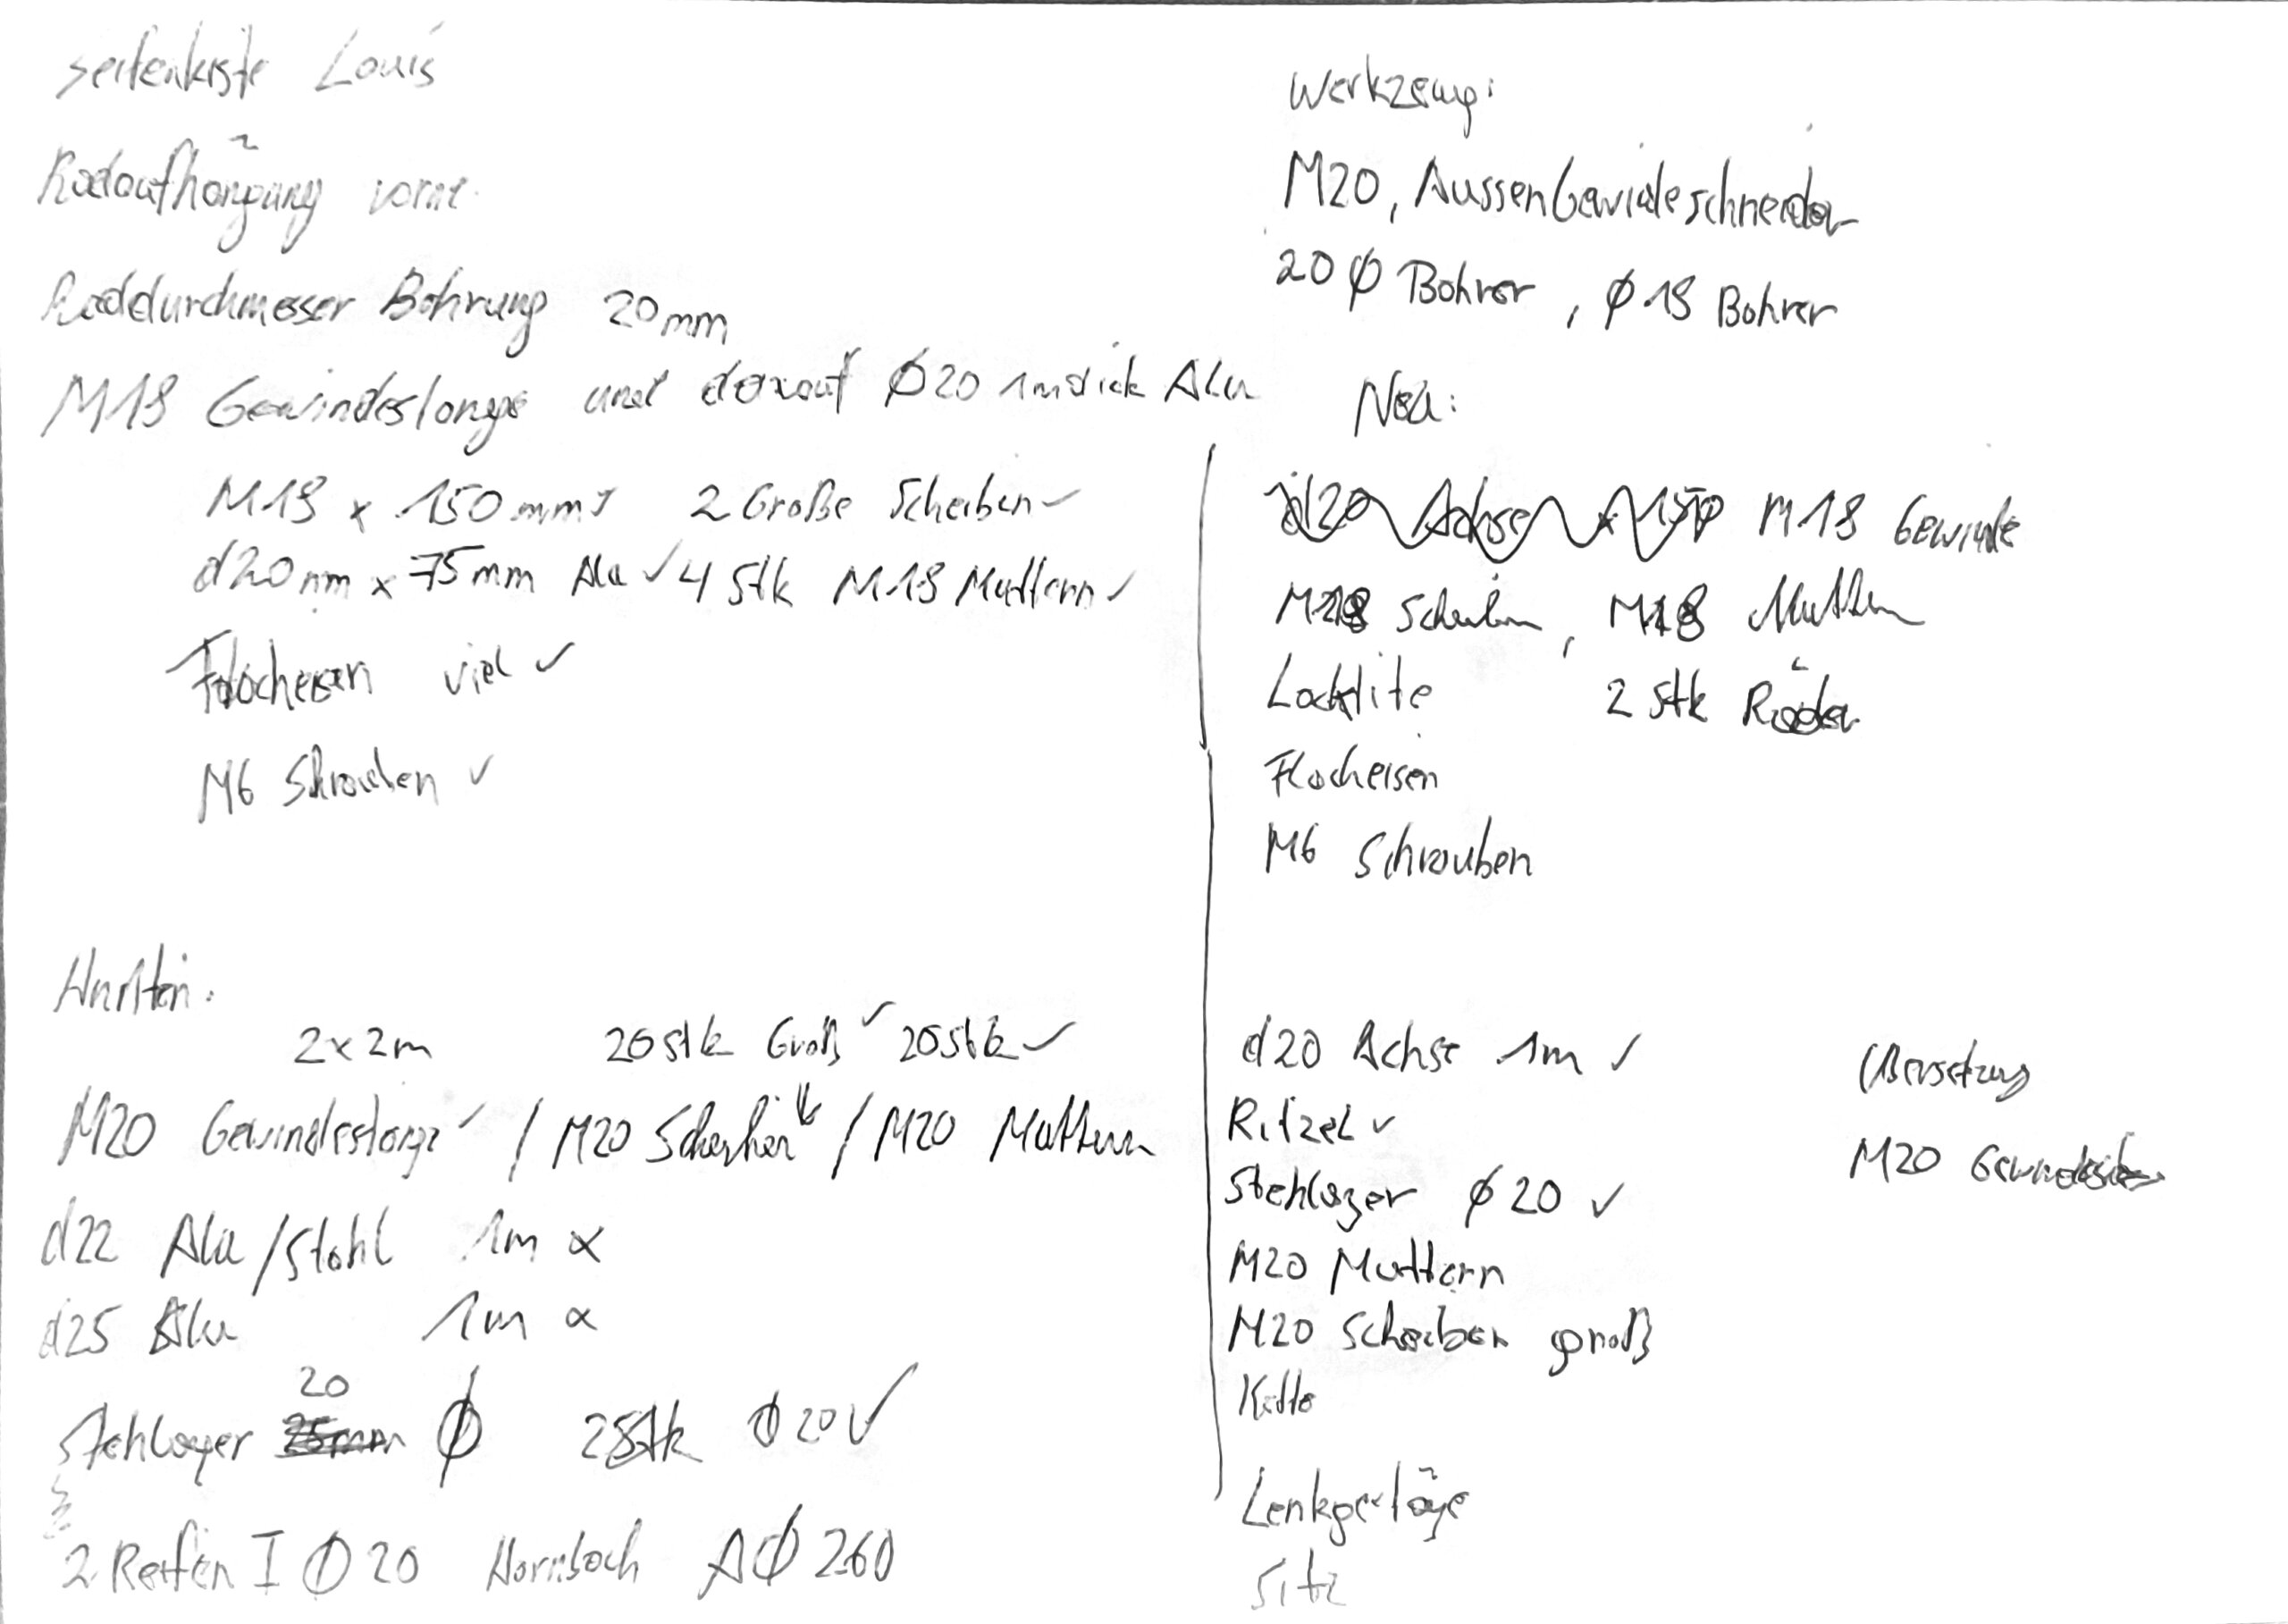 Seifenkiste Louis
Radaufhängung vorne
Raddurchmesser Bohrung 20mm
M18 Gewindestange und darauf Ø20 1mm dick Alu
M18 x 150mm ✓ 2 Große Scheiben ✓
d20mm x 75mm Alu ✓ 4 Stk M18 Muttern ✓
Flacheisen viel ✓
M6 Schrauben ✓
Hinten:
2x2m 20stk Groß ✓ 20stk ✓
M20 Gewindestange ✓ / M20 Scheiben / M20 Muttern
d22 Alu/Stahl 1m α
d25 Alu 1m α
20
Stehlager 25mm Ø 2Stk Ø20 ✓
2 Reifen I Ø20 Hornbach AØ260
Werkzeug:
M20, AussenGewindeschneider
20 Ø Bohrer, Ø 18 Bohrer
Neu:
d20 Achse x 150 M18 Gewinde
M18 Scheiben, M18 Muttern
Locktite 2 stk Räder
Flacheisen
M6 Schrauben
d20 Achse 1m ✓
Ritzel ✓
Stehlager Ø20 ✓
M20 Muttern
M20 Scheiben groß
Kette
Lenkgestänge
Sitz
Übersetzung
M20